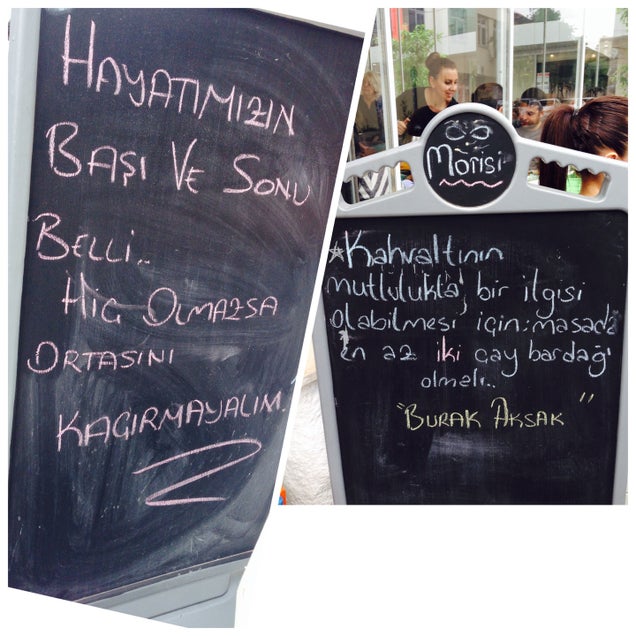 HAYATIMIZIN
BAŞI VE SONU
BELLİ..
HİÇ OLMAZSA
ORTASINI
KAÇIRMAYALIM.
Morisi
*Kahvaltının
mutlulukla, bir ilgisi
olabilmesi için: masada
en az iki çay bardağı
olmalı..
"BURAK AKSAK"